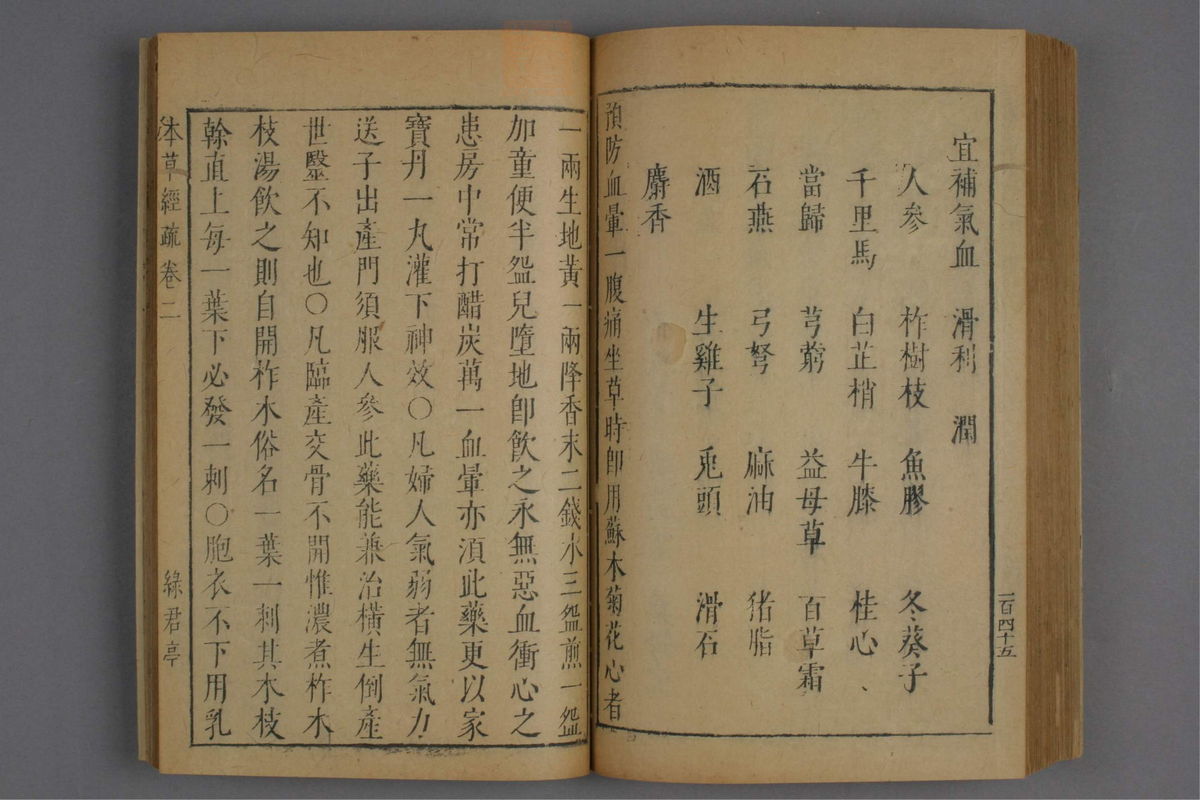 宜補氣血　滑利　潤
人參　柞樹枝　魚膠　冬葵子
千里馬　白芷梢　牛膝　桂心
當歸　芎藭　益母草　百草霜
石燕　弓弩　麻油　猪脂
酒　生雞子　兎頭　滑石
麝香
預防血暈一腹痛坐草時卽用蘇木菊花心者
一百四十五
一兩生地黃一兩降香末二錢水三盌煎一盌
加童便半盌兒墮地卽飲之永無惡血衝心之
患房中常打醋炭萬一血暈亦須此藥更以家
寶丹一丸灌下神效〇凡婦人氣弱者無氣力
送子出產門須服人參此藥能兼治橫生倒產
世毉不知也〇凡臨產交骨不開惟濃煮柞木
枝湯飲之則自開柞木俗名一葉一刺其木枝
幹直上每一葉下必發一刺〇胞衣不下用乳
本草經疏 卷二 綠君亭